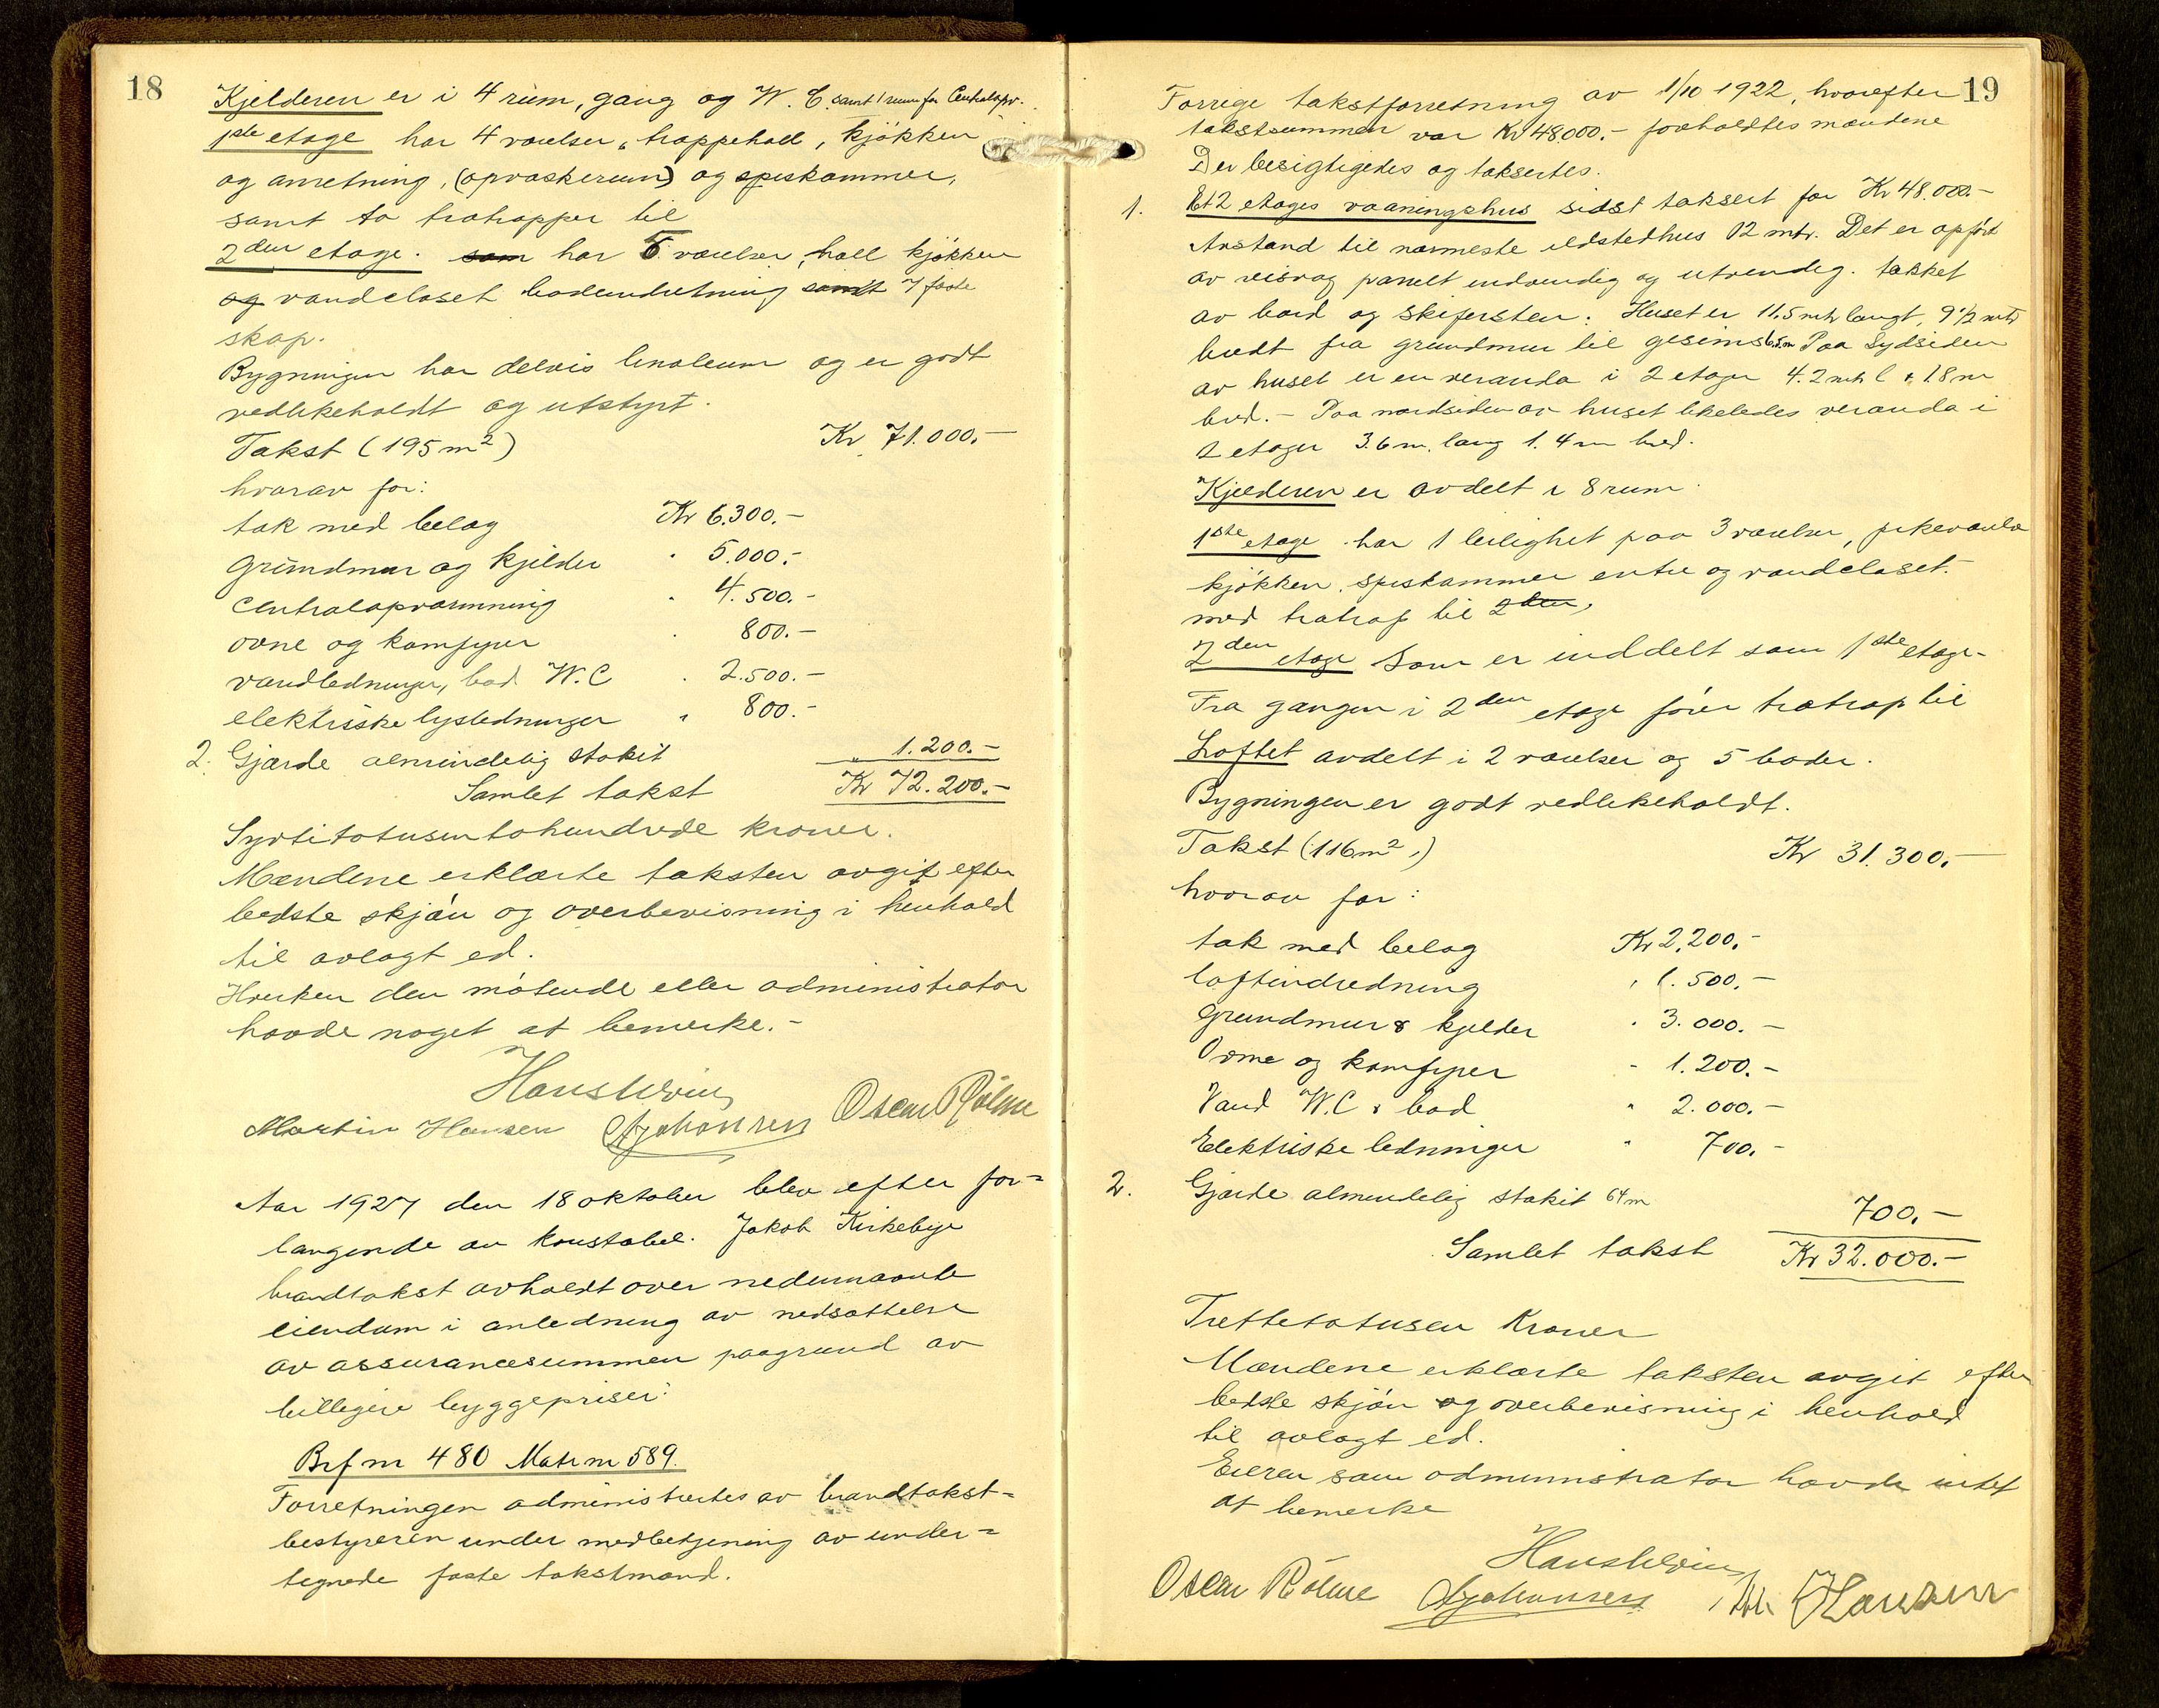 18
Kjelderen er i 4 rum, gang og W. C. samt 1 rum for Centralopv.
1ste etage har 4 værelser, trappehall, kjøkken
og anretning, (opvaskerum) og spiskammer,
samt to trætrapper til
2den etage. som har 5 værelser, hall kjøkken
og vandcloset badeindretning samt 7 faste
skap.
Bygningen har delvis linoleum og er godt
vedlikeholdt og utstyrt.
Takst (195 m2) Kr. 71.000.-
hvorav for:
tak med belæg Kr 6.300.-
grundmur og kjelder " 5.000.-
Centralopvarmning " 4.500.-
ovne og komfyrer " 800.-
vandledninger, bad W.C " 2.500.-
elektriske lysledninger " 800.-
2. Gjærde almindelig stakit " 1.200.-
Samlet takst Kr 72.200.-
Syttitotusentohundrede kroner.
Mændene erklærte taksten avgit efter
bedste skjøn og overbevisning i henhold
til avlagt ed.
Hverken den møtende eller administrator
havde noget at bemerke.-
Martin Hansen A Johansen Oscar Rölme
Aar 1927 den 18 oktober blev efter for=
langende av konstabel. Jakob Kirkebye
brandtakst avholdt over nedennævnte
eiendom i anledning av nedsættelse
av assurancesummen paagrund av
billigere byggepriser:
Brf nr 480 Matr nr 589.
Forretningen administrertes av brandtakst=
bestyreren under medbetjening av under=
tegnede faste takstmænd.
19
Forrige takstforretning av 1/10 1922, hvorefter
takstsummen var Kr 48.000.- foreholdtes mændene
Der besigtigedes og taksertes.
1. Et 2 etages vaaningshus sidst taksert for Kr 48.000.-
Avstand til nærmeste ildstedhus 12 mtr. Det er opført
av reisverk panelt indvendig og utvendig. tækket
av bord og skifersten. Huset er 11.5 mtr langt, 9 1/2 mtr
bredt fra grundmur til gesims 6.5 m Paa Sydsiden
av huset er en veranda i 2 etager 4.2 mtr l & 1.8 m
bred. - Paa nordsiden av huset likeledes veranda i
2 etager 3.6 m. lang 1.4 m bred.
Kjelderen er avdelt i 8 rum.
1ste etage har 1 leilighet paa 3 værelser, pikeværelse
kjøkken, spiskammer entre og vandcloset.
med trætrap til 2den,
2den etage som er inddelt som 1ste etage.
Fra gangen i 2den etage fører trætrap til
Loftet avdelt i 2 værelser og 5 boder.
Bygningen er godt vedlikeholdt.
Takst (116 m2.) Kr 31.300.-
hvorav for:
tak med belæg Kr 2.200.-
loftindredning " 1.500.-
grundmur & kjelder " 3.000.-
Ovne og komfyrer " 1.200.-
Vand W.C & bad " 2.000.-
Elektriske ledninger " 700.-
2. Gjærde almindelig stakit 64 m 700.-
Samlet takst Kr 32.000.-
Trettetotusen Kroner
Mændene erklærte taksten avgit efter
bedste skjøn og overbevisning i henhold
til avlagt ed.
Eieren som administrator havde intet
at bemerke
Oscar Rölme A Johansen M. Hansen